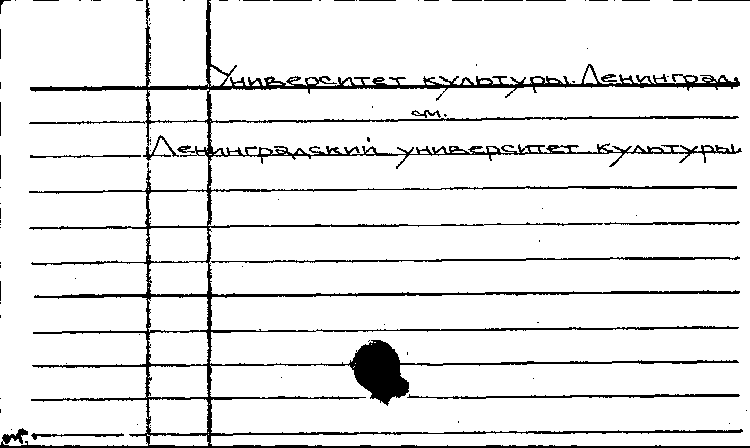 Университет культуры. Ленинград.
см.
Ленинградский университет культуры